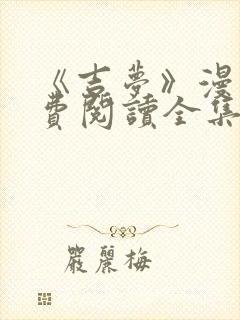 《吉夢》漫
費閱讀全集
嚴麗梅